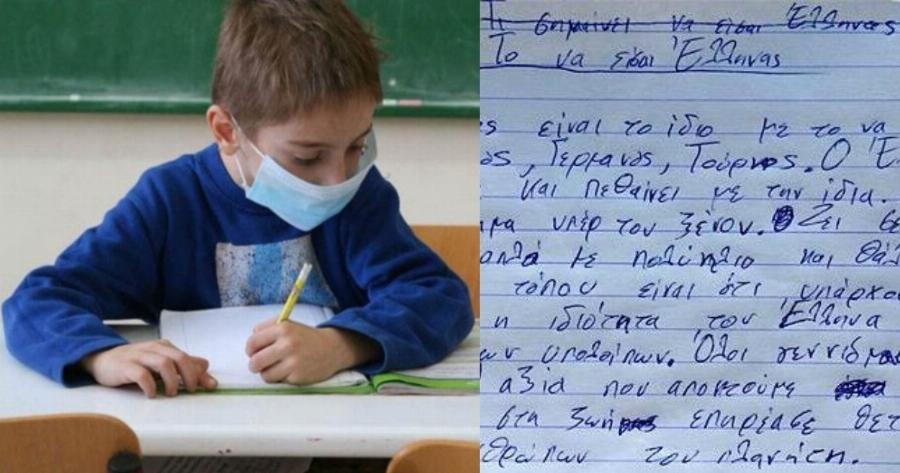 Τι σημαίνει να είσαι Έλληνας
Το να είσαι Έλληνας
ς είναι το ίδιο με το να
ός, Γερμανός, Τούρκος. Ο Έ
και πεθαίνει με την ίδια.
μα υπέρ του ξένου. Ζει σε
απλά με πολύ ήλιο και θάλ
τόπου είναι ότι υπάρχο
η ιδιότητα του Έλληνα
ων υπολοίπων. Όλοι γεννιόμα
αξία που αποκτούμε
στη ζωή επηρέασε θετ
θρώπων του πλανήτη.